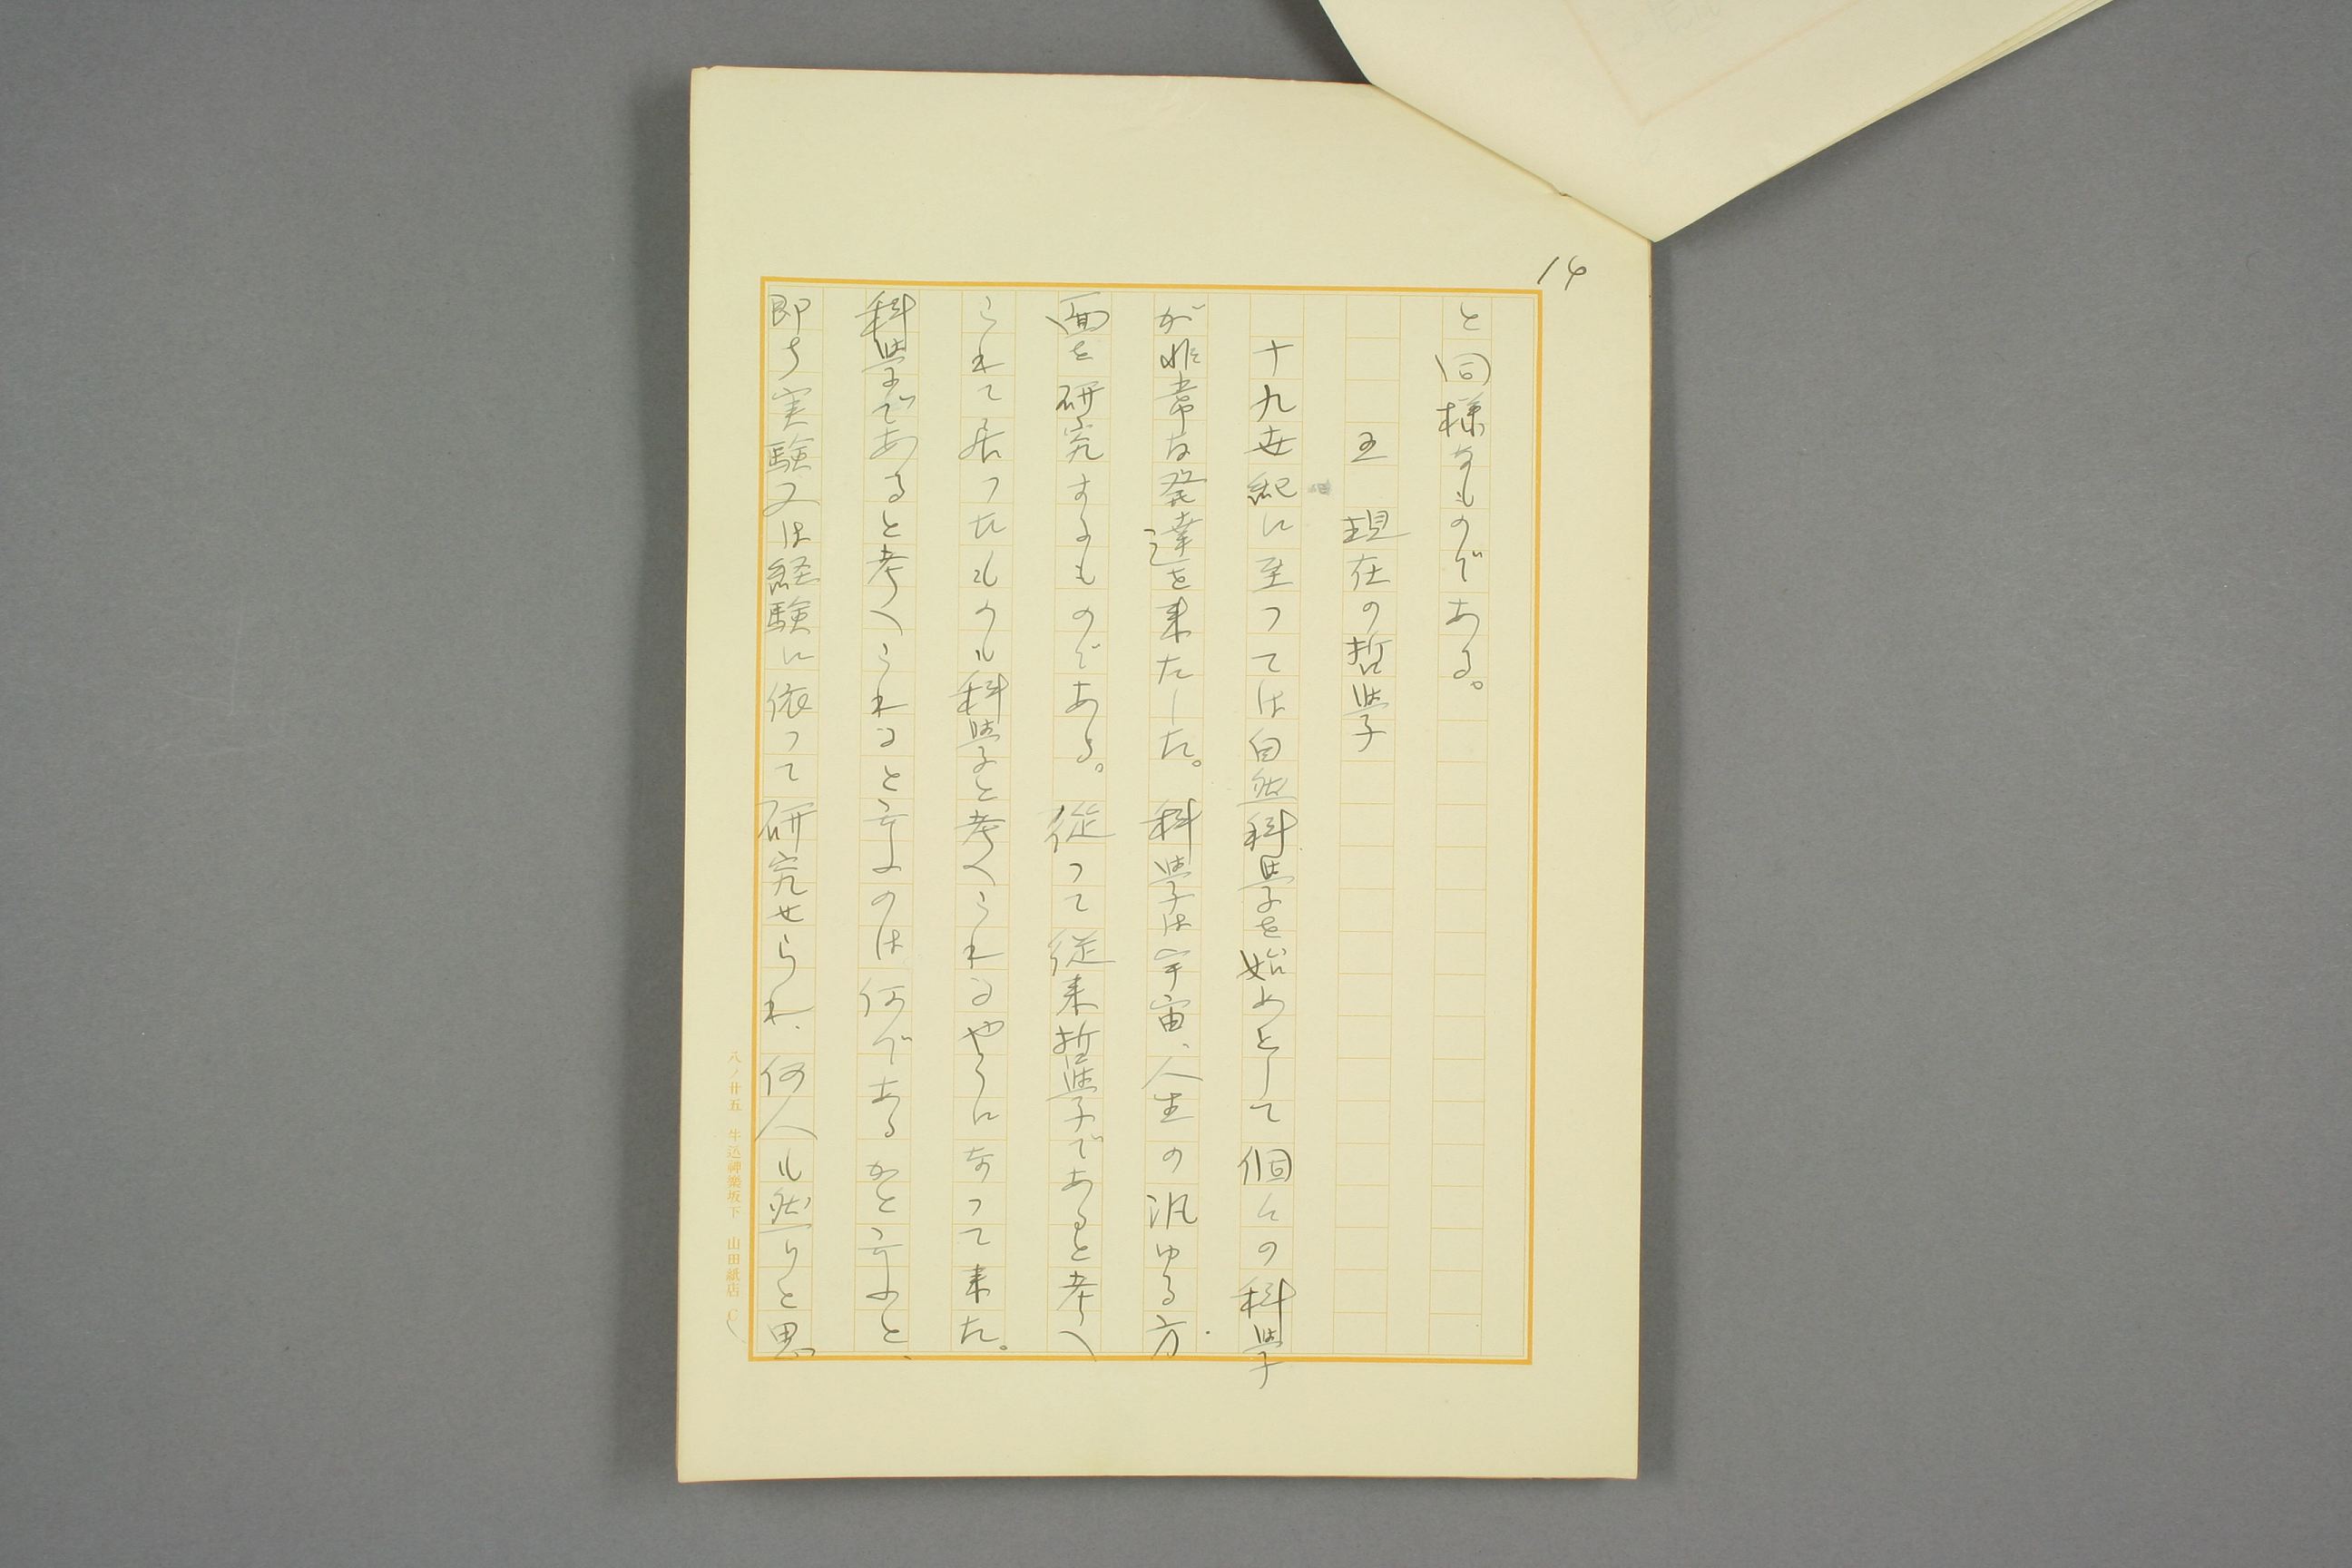 14
と同様なものである。
五　現在の哲學
十九世紀に至つては自然科學を始めとして個々の科學
が非常な発達を来たした。科學は宇宙、人生の汎ゆる方
面を研究するものである。従つて従来哲學であると考へ
られて居つたものも科學と考へられるやうになつて来た。
科學であると考へられると言ふのは何であるかと言ふと、
即ち実験又は経験に依つて研究せられ、何人も然りと思
八ノ廿五　牛込神樂坂下　山田紙店